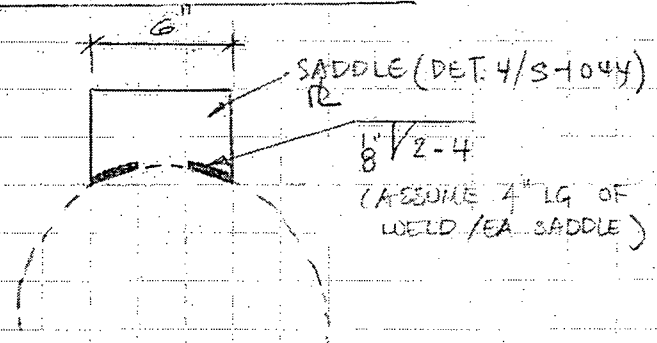 6"
SADDLE (DET. 4/S-1044)
PL
1/8" 2-4
(ASSUME 4" LG OF
WELD /EA SADDLE)